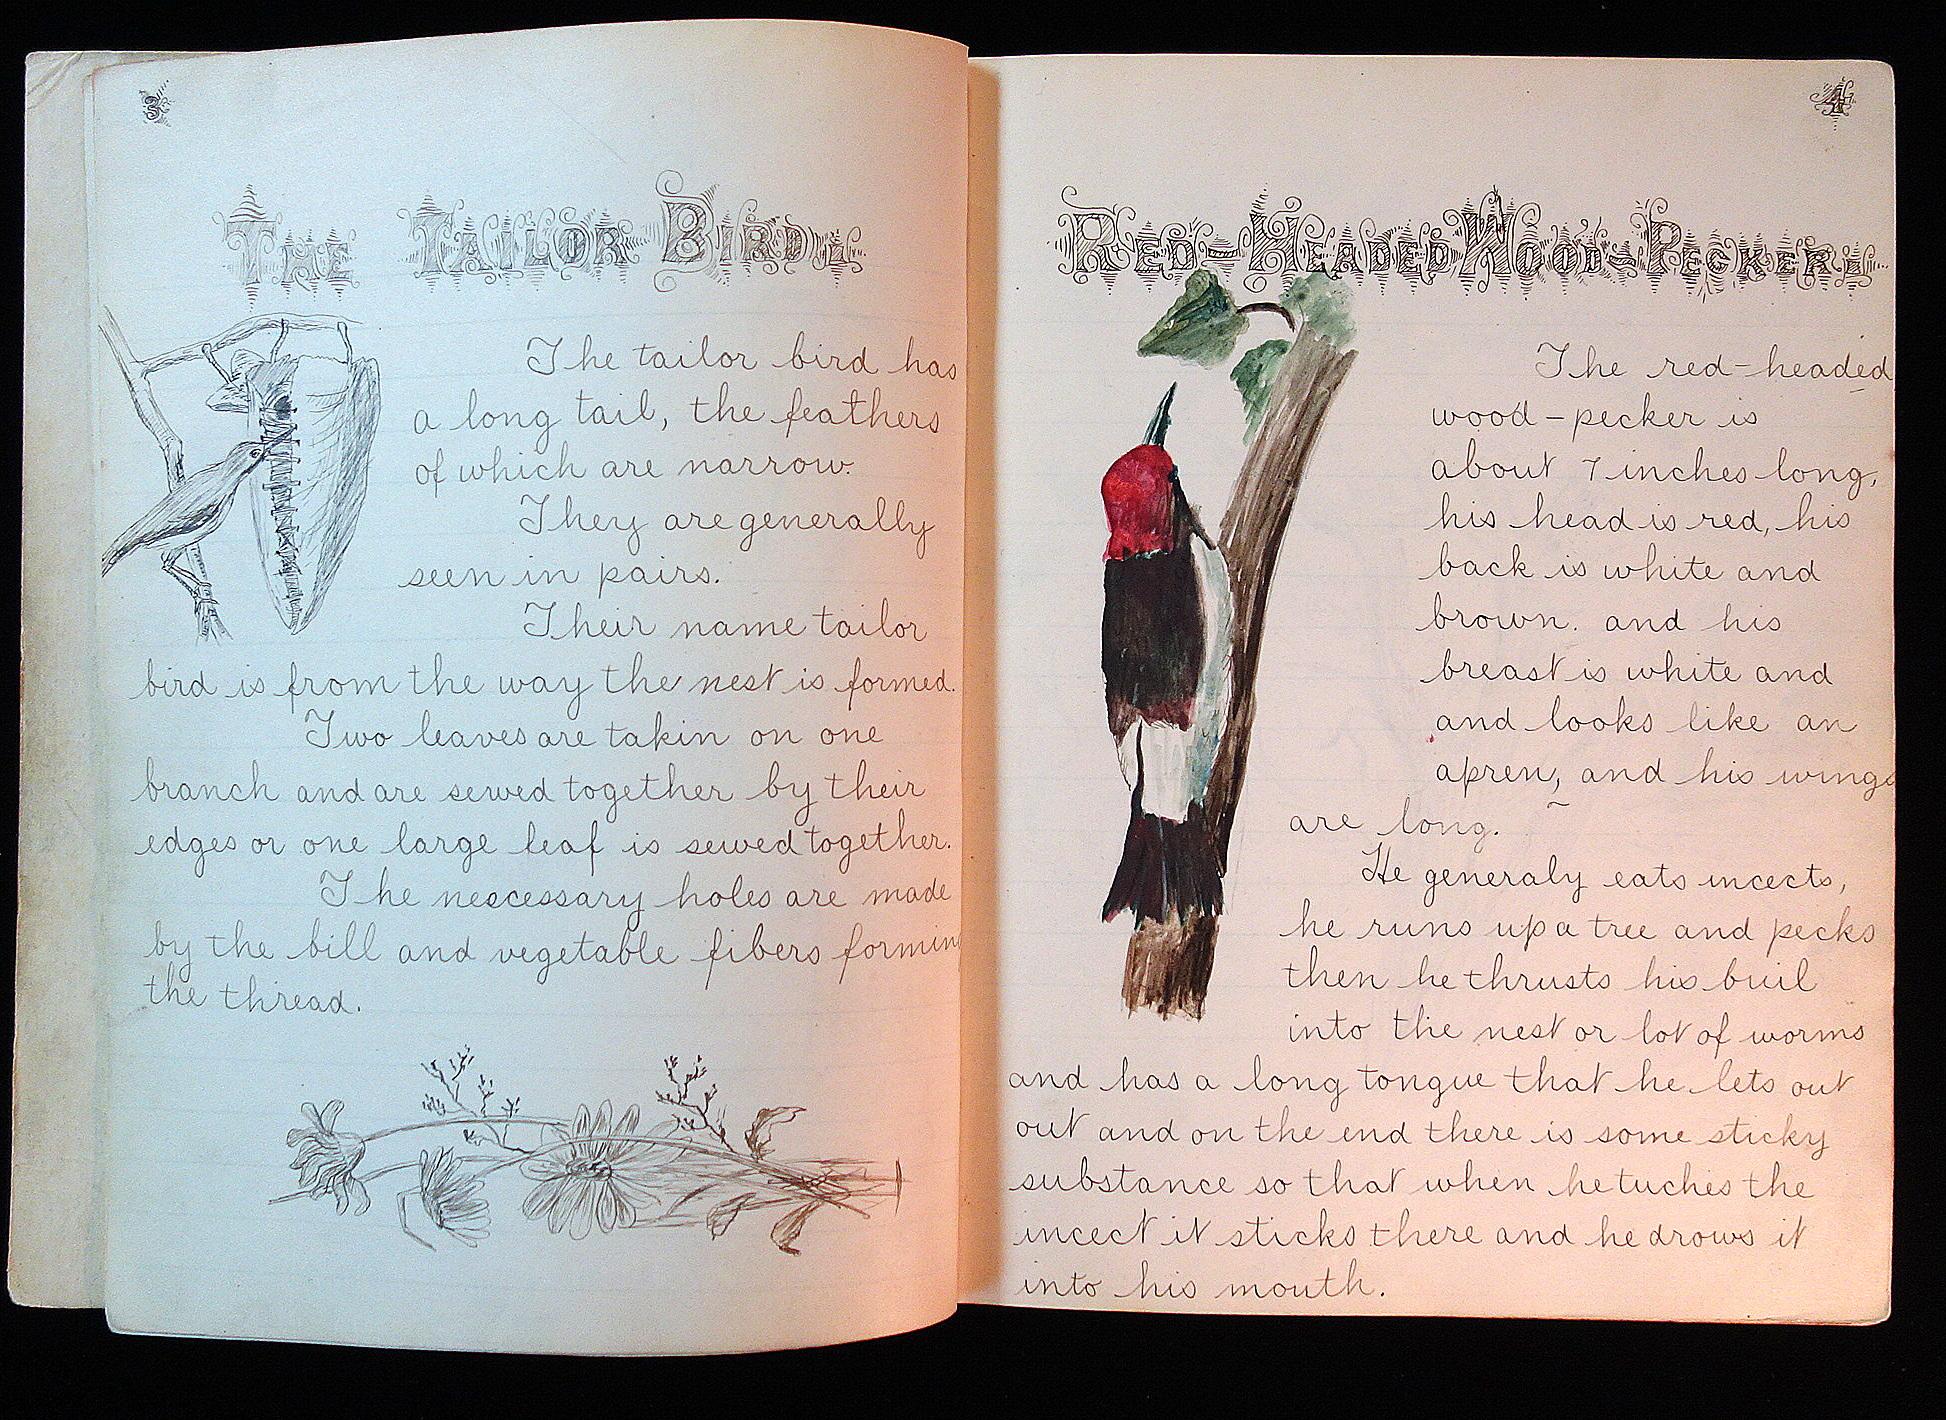 3
The Tailor Bird.
The tailor bird has
a long tail, the feathers
of which are narrow.
They are generally
seen in pairs.
Their name tailor
bird is from the way the nest is formed.
Two leaves are takin on one
branch and are sewed together by their
edges or one large leaf is sewed together.
The nescessary holes are made
by the bill and vegetable fibers forming
the thread.
4
Red-Headed Wood-Pecker.
The red-headed
wood-pecker is
about 7 inches long,
his head is red, his
back is white and
brown. and his
breast is white and
and looks like an
apren, and his wings
are long.
He generaly eats incects,
he runs up a tree and pecks
then he thrusts his buil
into the nest or lot of worms
and has a long tongue that he lets out
out and on the end there is some sticky
substance so that when he tuches the
incect it sticks there and he drows it
into his mouth.